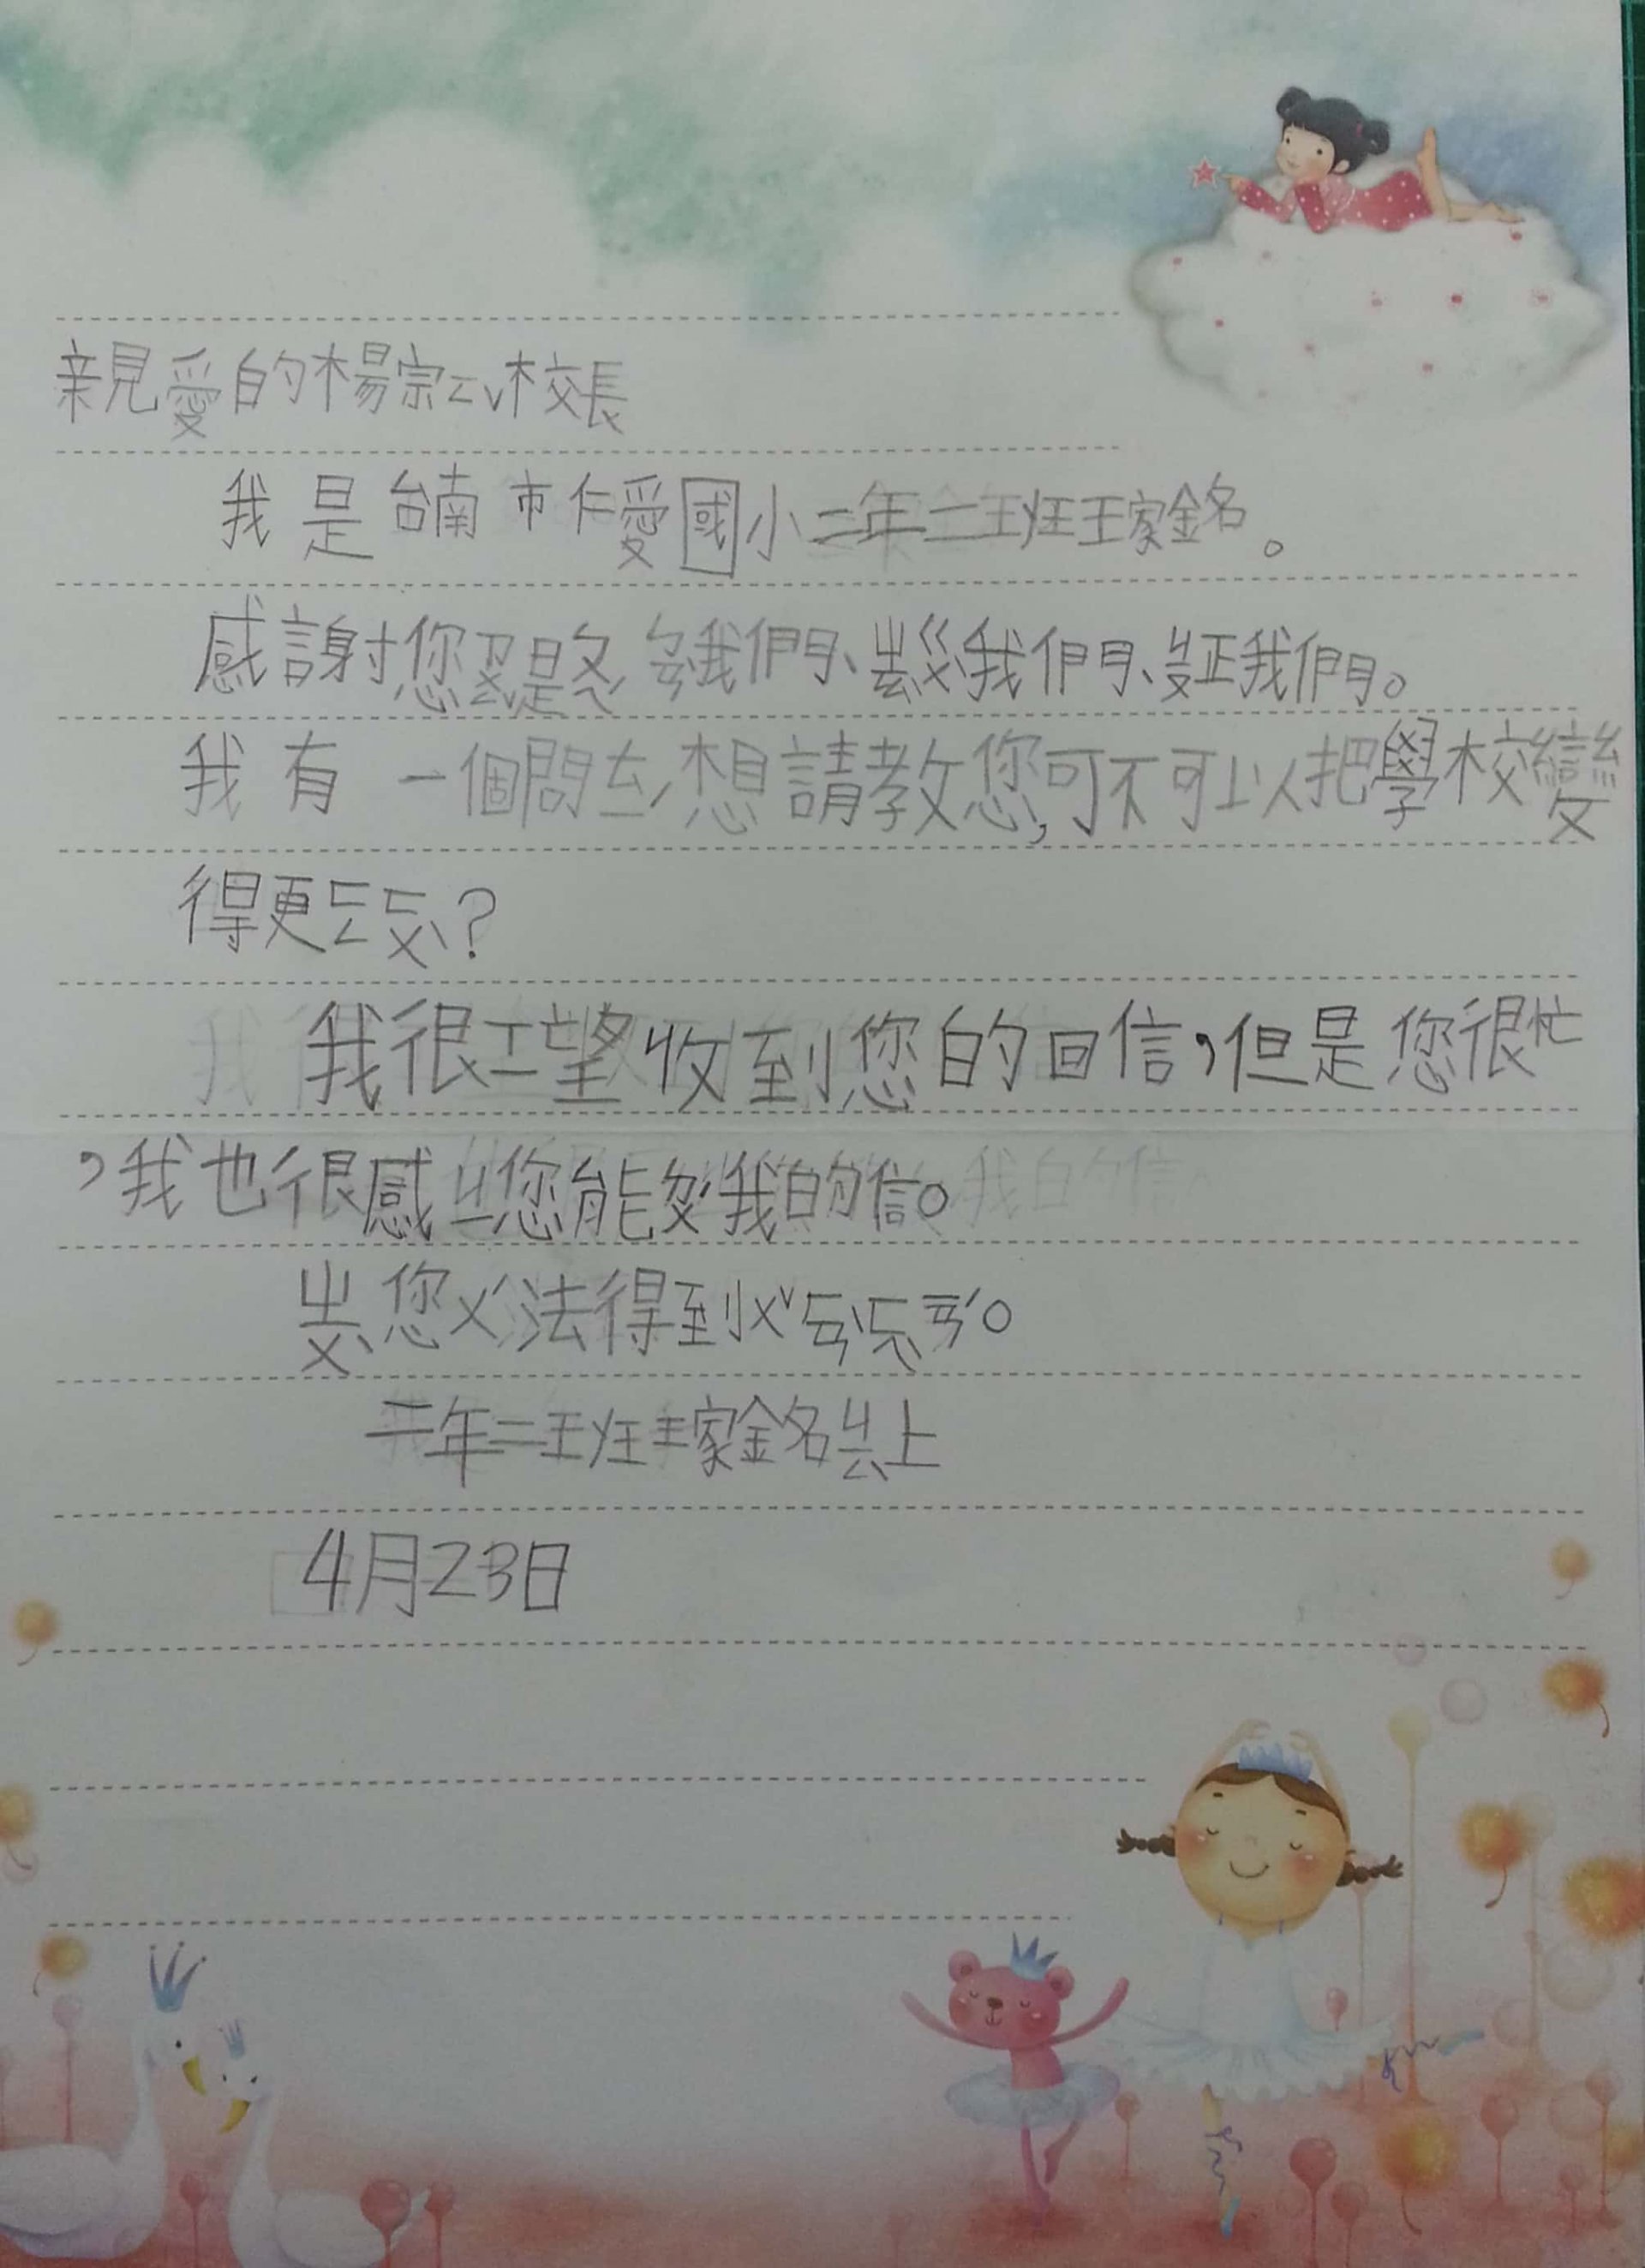 親愛的楊宗ㄙˇ校長
我是台南市仁愛國小二年二班王家銘。
感謝您 我們、 我們、 我們。
我有一個問ㄊㄧˊ想請教您,可不可以把學校變
得更ㄈㄥㄈㄨˋ?
我很ㄒㄧ望收到您的回信,但是您很忙
,我也很感ㄐㄧ您能 我的信。
ㄓㄨˋ您ㄨˊ法得到ㄨˇㄢˋㄈㄣˊ。
二年二班王家銘ㄐㄧㄥˋ上
4月23日